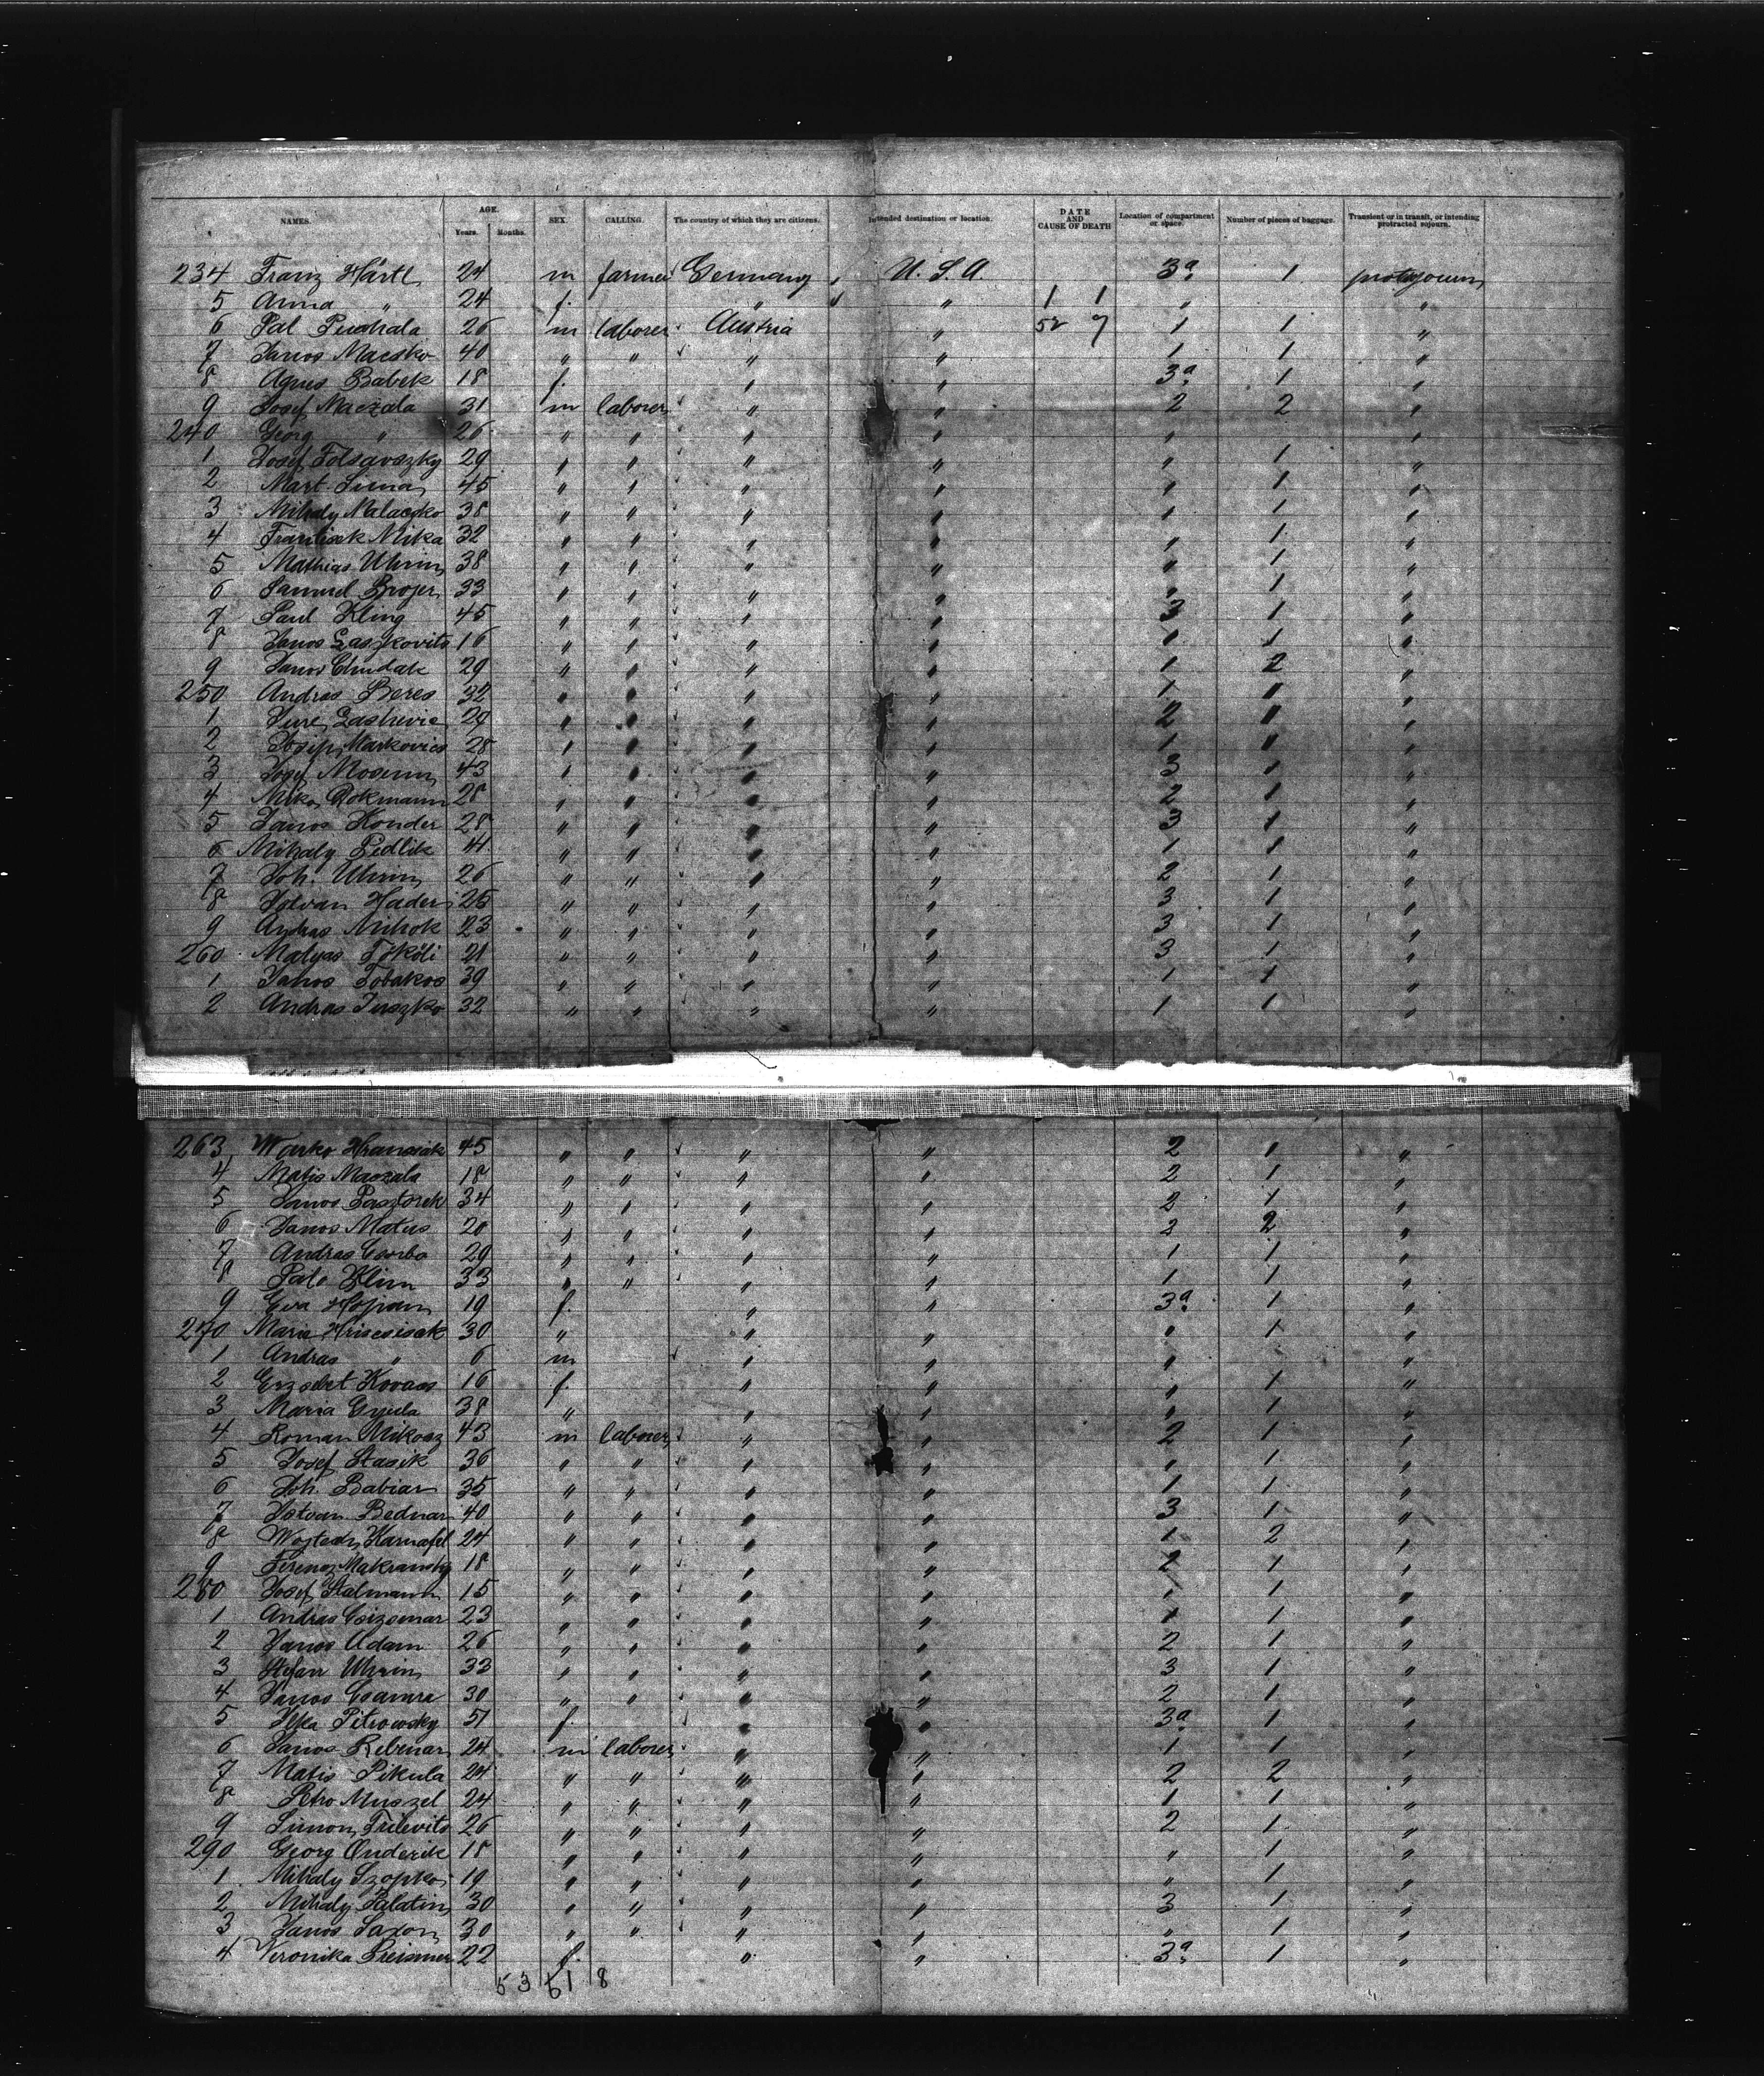 NAMES. AGE. Years. Months. SEX. CALLING. The country of which they are citizens. Intended destination or location. DATE AND CAUSE OF DEATH Location of compartment or space. Number of pieces of baggage. Transient or in transit, or intending protracted sojourn.
234 Franz Härtl 24 m farmer Germany U. S. A. 3a 1
5 Anna " 24 f. " " 1 1 " "
6 Pal 26 m laborer Austria " 52 7 1 1 "
7 Janos Macsko 40 " " " " 1 1 "
8 Agnes Babek 18 f. " " 3a 1 "
9 Josef Maczala 31 m laborer " " 2 2 "
240 Georg " 26 " " " " " "
1 Josef 29 " " " " " 1 "
2 Mart. Sima 45 " " " " " 1 "
3 Mihaly 38 " " " " " 1 "
4 Frantisek Mika 32 " " " " " 1 "
5 Mathias Uhrin 38 " " " " " 1 "
6 Samuel 33 " " " " " 1 "
7 Paul Kling 45 " " " " 3 1 "
8 Janos 16 " " " " 1 1 "
9 Janos Chudak 29 " " " " 1 2 "
250 Andras Beres 32 " " " " 1 1 "
1 Jure 29 " " " " 2 1 "
2 Josip Markovics 28 " " " " 1 1 "
3 Josef 43 " " " " 3 1 "
4 Miko Rokmann 28 " " " " 2 1 "
5 Janos Konder 28 " " " " 3 1 "
6 Mihaly Pedlik 41 " " " " 1 1 "
7 Joh. Uhrin 26 " " " " 2 1 "
8 Istvan Hader 25 " " " " 3 1 "
9 Andras Mihok 23 " " " " 3 1 "
260 Matyas Tököli 21 " " " " 3 1 "
1 Janos Tobakos 39 " " " " 1 1 "
2 Andras Juszko 32 " " " " 1 1 "
263 45 " " " " 2 1 "
4 Matis Maczala 18 " " " " 2 1 "
5 Janos Pasztorek 34 " " " " 2 1 "
6 Janos Matus 20 " " " " 2 2 "
7 Andras Csorba 29 " " " " 1 1 "
8 Palo Klim 33 " " " " 1 1 "
9 Eva 19 f. " " 3a 1 "
270 Maria 30 " " " " 1 "
1 Andras " 6 m " " " "
2 Erzsebet Kovacs 16 f. " " " 1 "
3 Maria Gyula 38 " " " " 1 "
4 Roman Mikosz 43 m laborer " " 2 1 "
5 Josef Stasik 36 " " " " " 1 "
6 Joh. Babiar 35 " " " " 1 1 "
7 Istvan Bednar 40 " " " " 3 1 "
8 24 " " " " 1 2 "
9 Ferencz Makransky 18 " " " " 2 1 "
280 Josef Stalmann 15 " " " " " 1 "
1 Andras Csizsmar 23 " " " " 1 1 "
2 Janos Adam 26 " " " " 2 1 "
3 Stefan Uhrin 33 " " " " 3 1 "
4 Janos 30 " " " " 2 1 "
5 Ilka Pitrowsky 51 f. " " 3a 1 "
6 Janos Rebenar 24 m laborer " " 1 1 "
7 Matis Pikula 24 " " " " 2 2 "
8 Petro Muszel 24 " " " " 1 1 "
9 Simon 26 " " " " 2 1 "
290 Georg Onderik 18 " " " " " 1 "
1 Mihaly Szopko 19 " " " " " 1 "
2 Mihaly Palatin 30 " " " " 3 1 "
3 Janos Saxon 30 " " " " " 1 "
4 Veronika 22 f. " " 3a 1 "
53 61 8